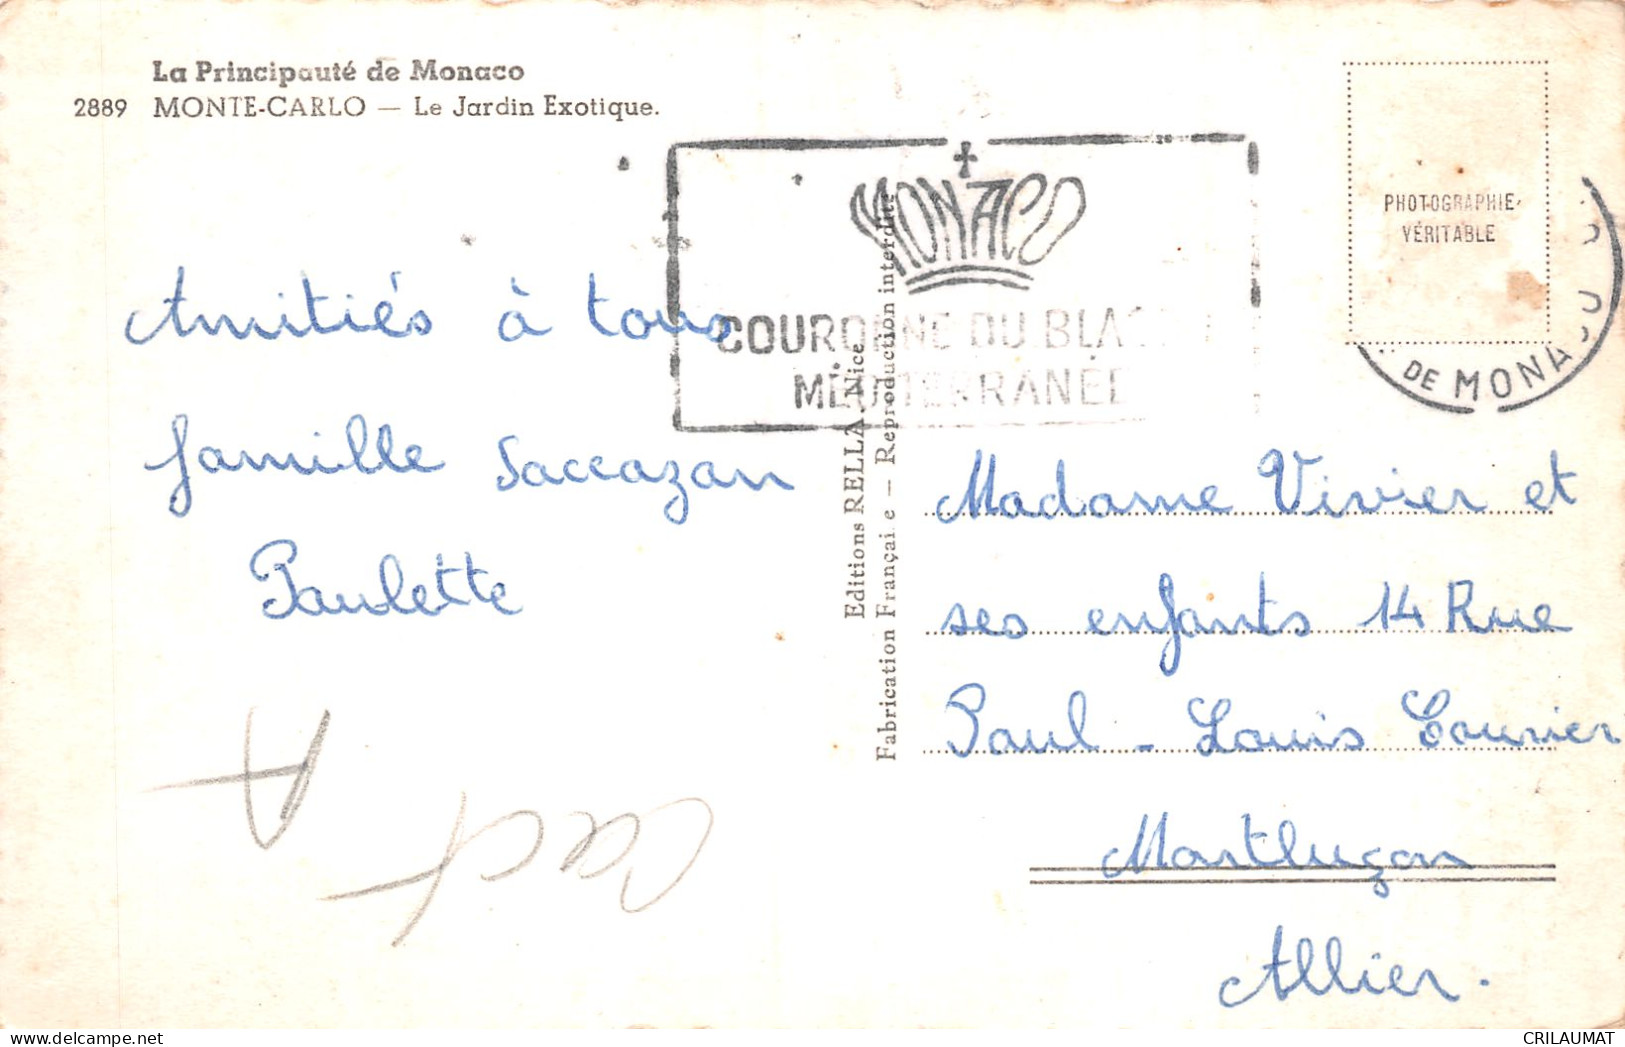 La Principauté de Monaco
2889 MONTE-CARLO — Le Jardin Exotique.
MONACO
COURONNE DU BLASON
MÉDITERRANÉE
PHOTOGRAPHIE
VÉRITABLE
DE MONACO
Amitiés à tous
famille Saccazan
Paulette
Editions RELLA, Nice
Fabrication Françai e — Reproduction interdite
Madame Vivier et
ses enfants 14 Rue
Paul-Louis Courier
Montluçon
Allier.
A
CRILAUMAT